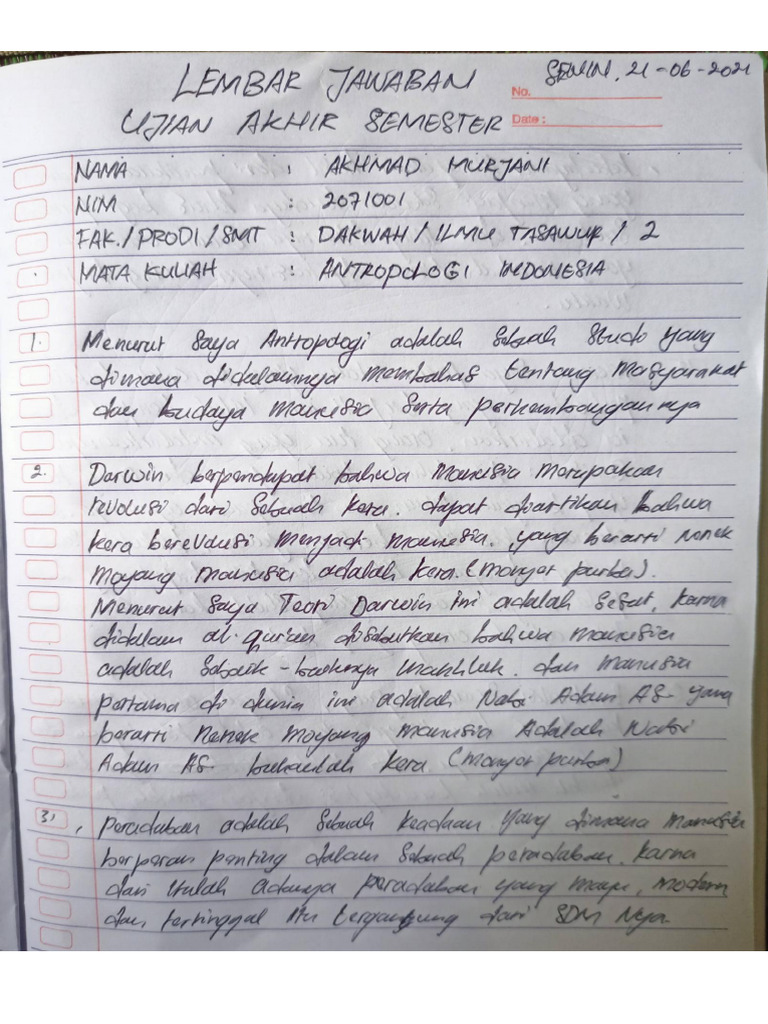 SENIN, 21-06-2021
LEMBAR JAWABAN
No.
UJIAN AKHIR SEMESTER
Date :
NAMA : AKHMAD MURJANI
NIM : 2071001
FAK./PRODI/SMT : DAKWAH / ILMU TASAWUF / 2
MATA KULIAH : ANTROPOLOGI INDONESIA
1. Menurut saya Antropologi adalah sebuah studi yang
dimana didalamnya membahas tentang masyarakat
dan budaya manusia serta perkembangannya
2. Darwin berpendapat bahwa manusia merupakan
revolusi dari sebuah kera. dapat diartikan bahwa
kera berevolusi menjadi manusia. yang berarti nenek
moyang manusia adalah kera. (monyet purba).
Menurut saya Teori Darwin ini adalah sesat, karna
didalam al-qur'an disebutkan bahwa manusia
adalah sebaik-baiknya makhluk. dan manusia
pertama di dunia ini adalah Nabi Adam AS- yang
berarti nenek moyang manusia Adalah Nabi
Adam AS- bukanlah kera (monyet purba)
3. Peradaban adalah sebuah keadaan yang dimana manusia
berperan penting dalam sebuah peradaban. karna
dari itulah adanya peradaban yang maju, modern
dan tertinggal itu tergantung dari SDM nya.